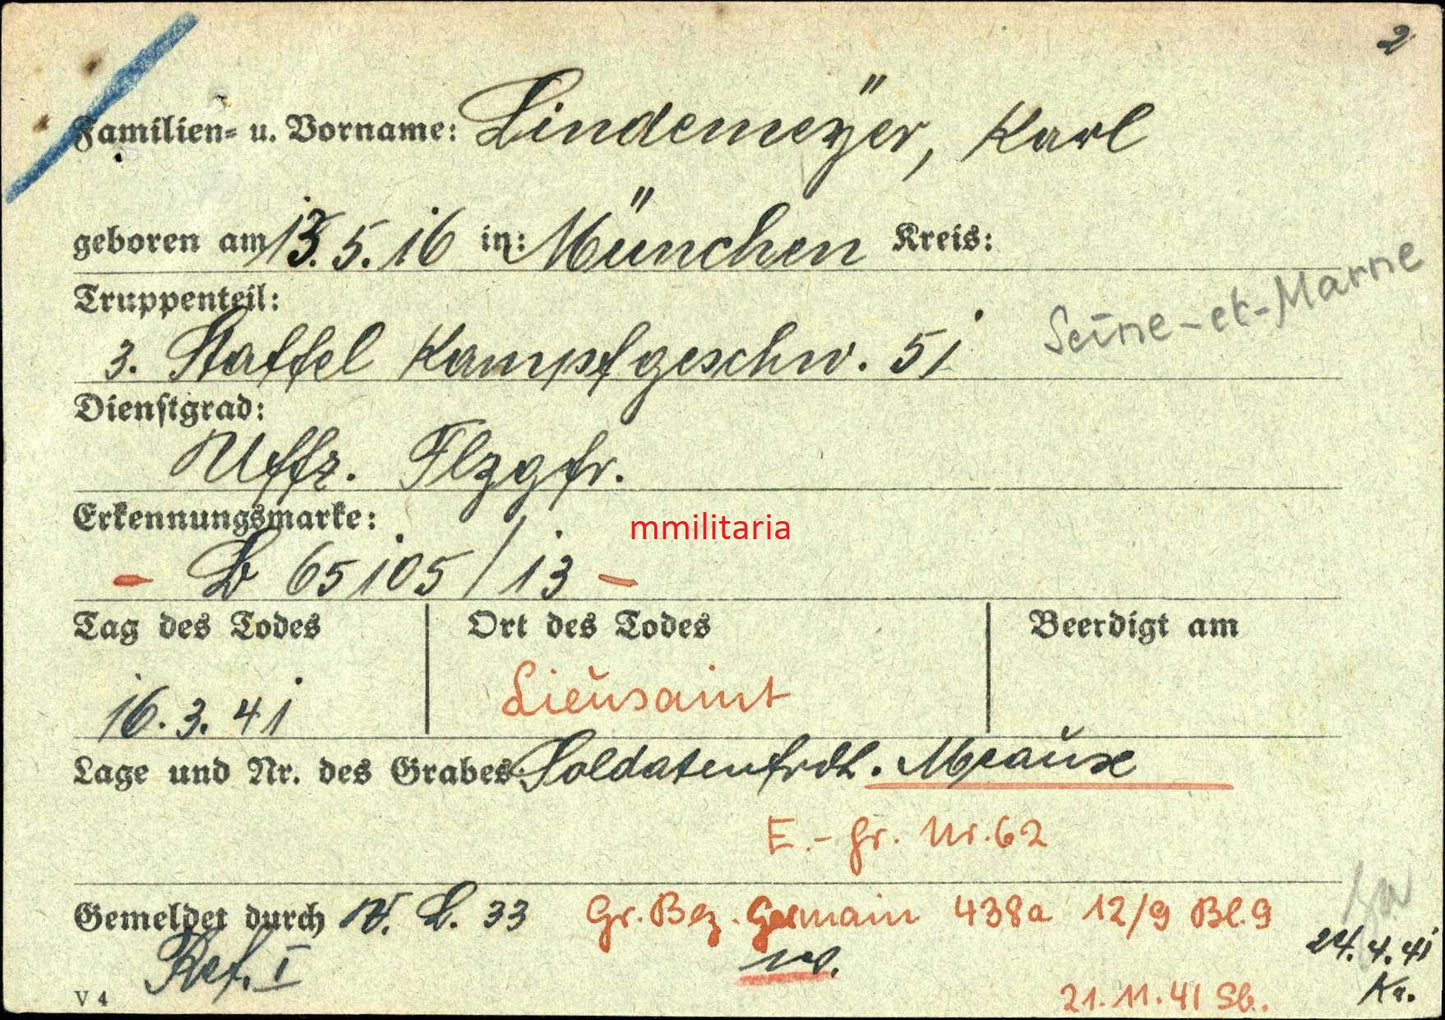 2
Familien- u. Vorname: Lindemeÿer, Karl
geboren am 13.5.16 in: München Kreis:
Truppenteil:
Seine-et-Marne
3. Staffel Kampfgeschw. 51
Dienstgrad:
Uffz. Flzgfr.
Erkennungsmarke:
mmilitaria
- B 65105/13 -
Tag des Todes Ort des Todes Beerdigt am
16.3.41 Lieusaint
Lage und Nr. des Grabes Soldatenfrdh. Meaux
E.-Gr. Nr. 62
Gemeldet durch V. L. 33 Gr. Bez. Germain 438a 12/9 Bl. 9
24.4.41
Ref. I
Kr.
V 4
21.11.41 Sb.